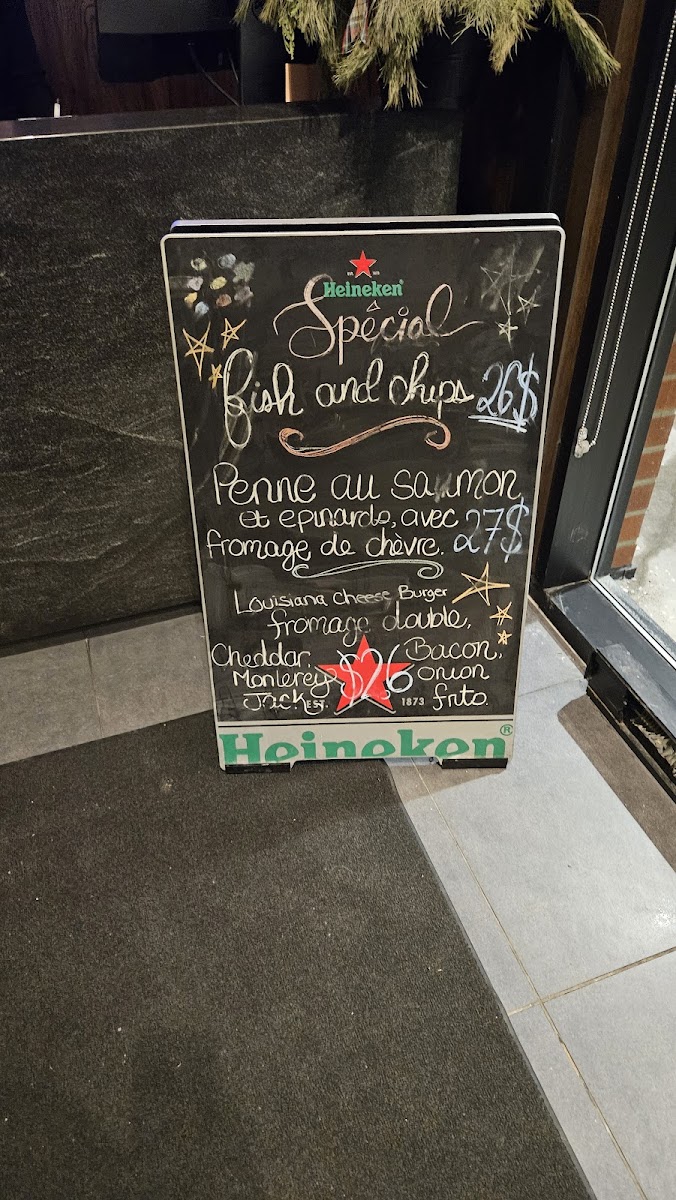 Heineken®
Spécial
fish and chips 26$
Penne au saumon
et epinards, avec 27$
fromage de chèvre.
Louisiana Cheese Burger
fromage double,
Cheddar, Bacon,
Monterey $26 onion
Jack EST. 1873 frito.
Heineken®